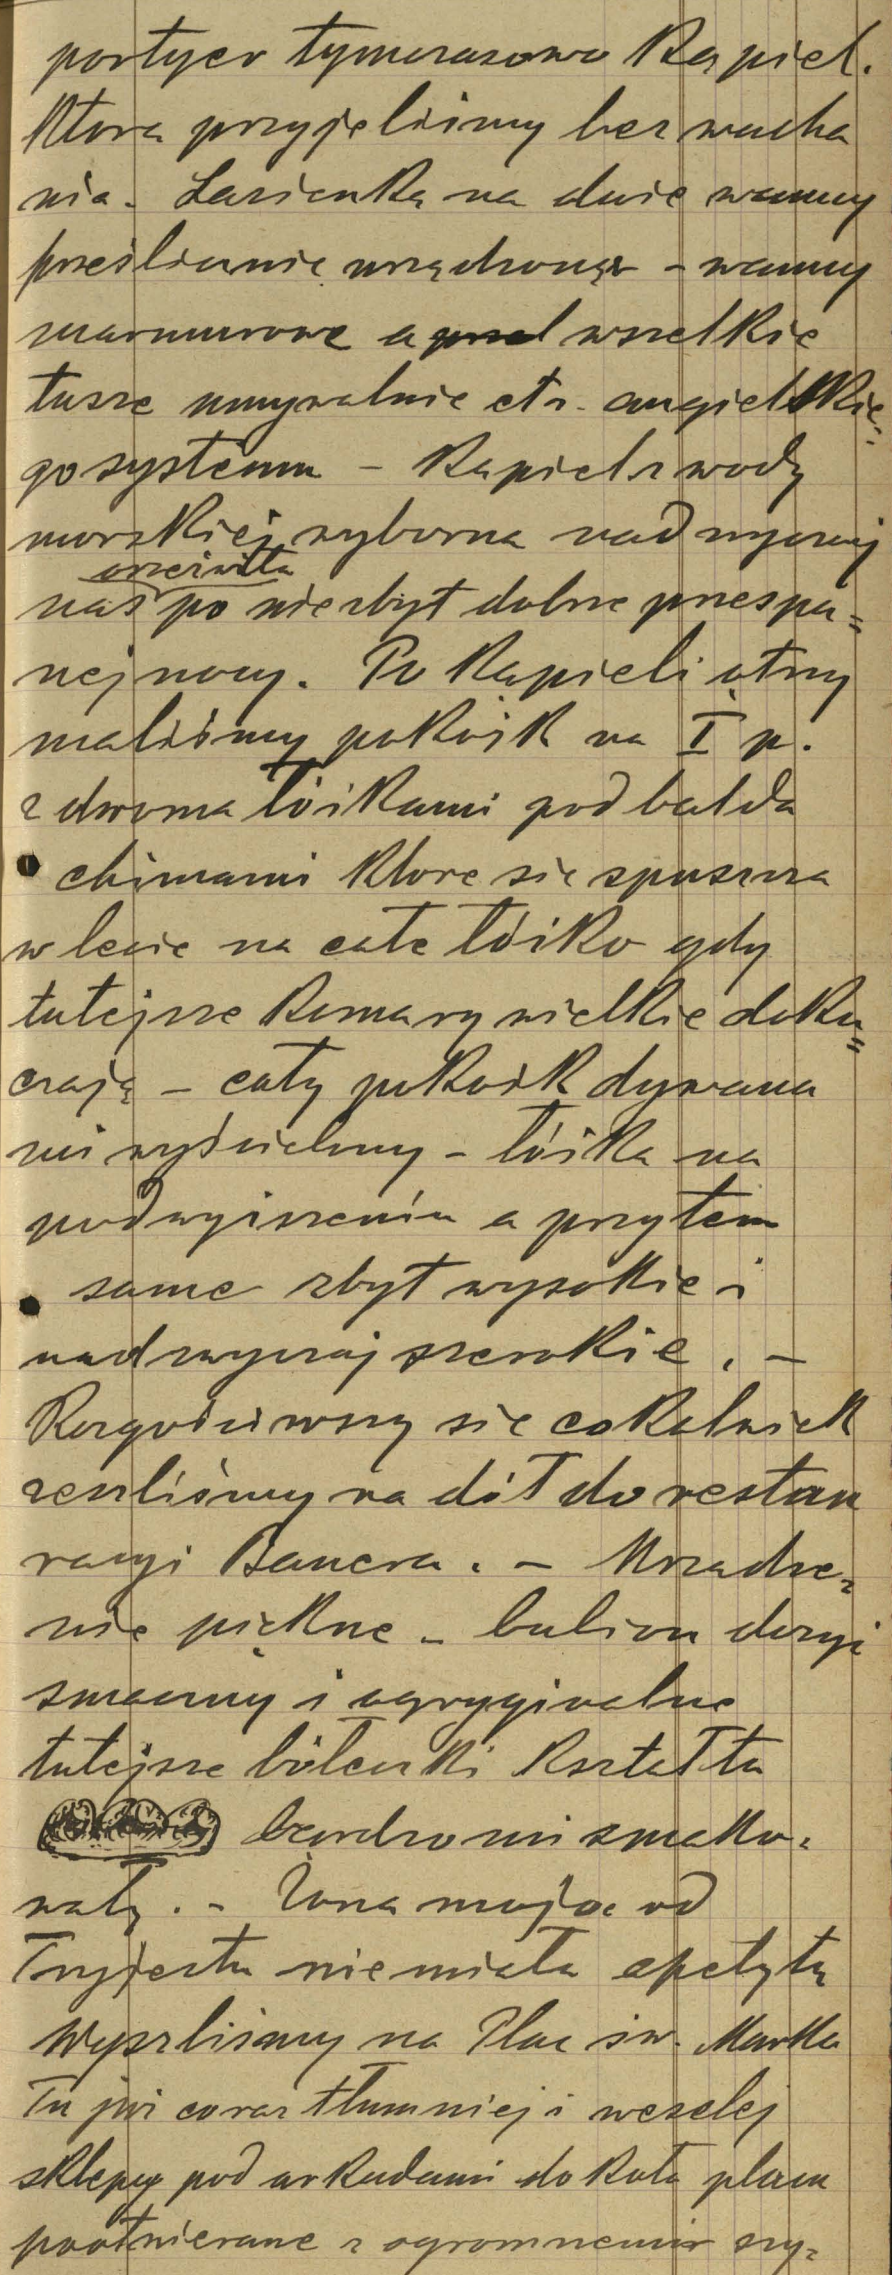 portyer tymczasowo Kąpiel.
Którą przyjeliśmy bez wacha
nia. Łazienką na dwie wanny
prześlicznie urządzoną - wanny
marmurowe a wszelkie
tusze umywalnie etc. angielskie=
go systemu - Kąpiel z wody
morskiej wyborna nadzwyczaj
orzeźwiła
nas po niezbyt dobrze przespa=
nej nocy. Po Kąpieli otrzy
maliśmy pokoik na I p.
z dwoma łóżkami pod balda
chimami które się spuszcza
w lecie na całe łóżko gdy
tutejsze Komary wielkie doku=
czają - cały pokoik dywana
mi wyścielony - łóżka na
podwyższeniu a przytem
same zbyt wysokie i
nadzwyczaj szerokie. -
Rozgościwszy się cokolwiek
zeszliśmy na dół do restau
racyi Bauera. - Urządze=
nie piękne - bulion dosyć
smaczny i oryginalne
tutejsze bółeczki Kształtu
bardzo mi smako=
wały. - Żona moja od
Tryjestu nie miała apetytu
Wyszliśmy na Plac św. Marka
Tu już coraz tłumniej i weselej
sklepy pod arkadami dokoła placu
pootwierane z ogromnemi szy=